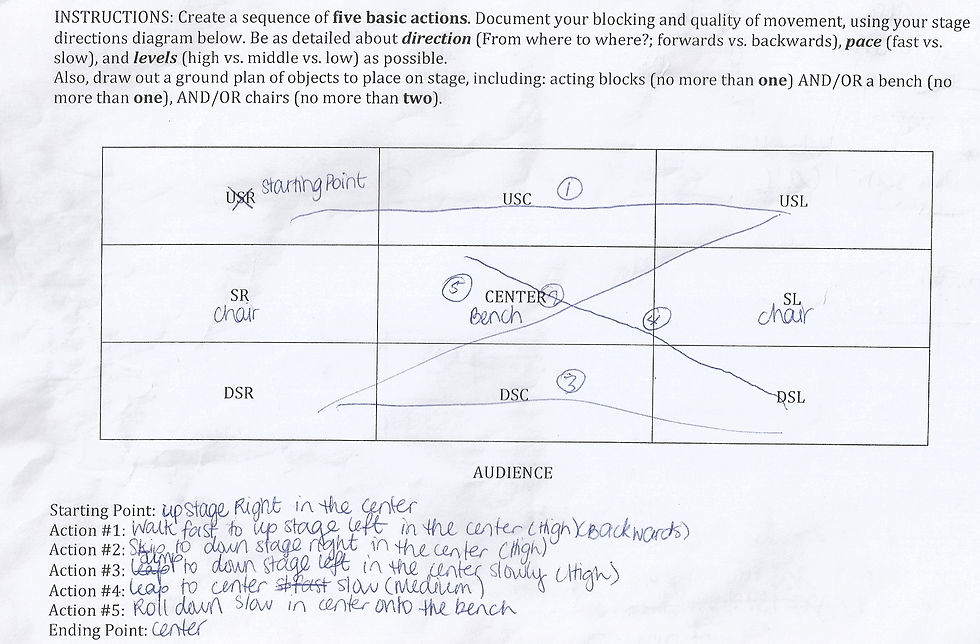 INSTRUCTIONS: Create a sequence of five basic actions. Document your blocking and quality of movement, using your stage
directions diagram below. Be as detailed about direction (From where to where?; forwards vs. backwards), pace (fast vs.
slow), and levels (high vs. middle vs. low) as possible.
Also, draw out a ground plan of objects to place on stage, including: acting blocks (no more than one) AND/OR a bench (no
more than one), AND/OR chairs (no more than two).
USR Starting Point
USC 1
USL
SR
chair
5 CENTER 2
Bench
4
SL
chair
DSR
DSC 3
DSL
AUDIENCE
Starting Point: upstage Right in the center
Action #1: walk fast to up stage left in the center (High)(Backwards)
Action #2: Skip to down stage right in the center (High)
Action #3: leap jump to down stage left in the center slowly (High)
Action #4: leap to center fast slow (Medium)
Action #5: Roll down slow in center onto the bench
Ending Point: center